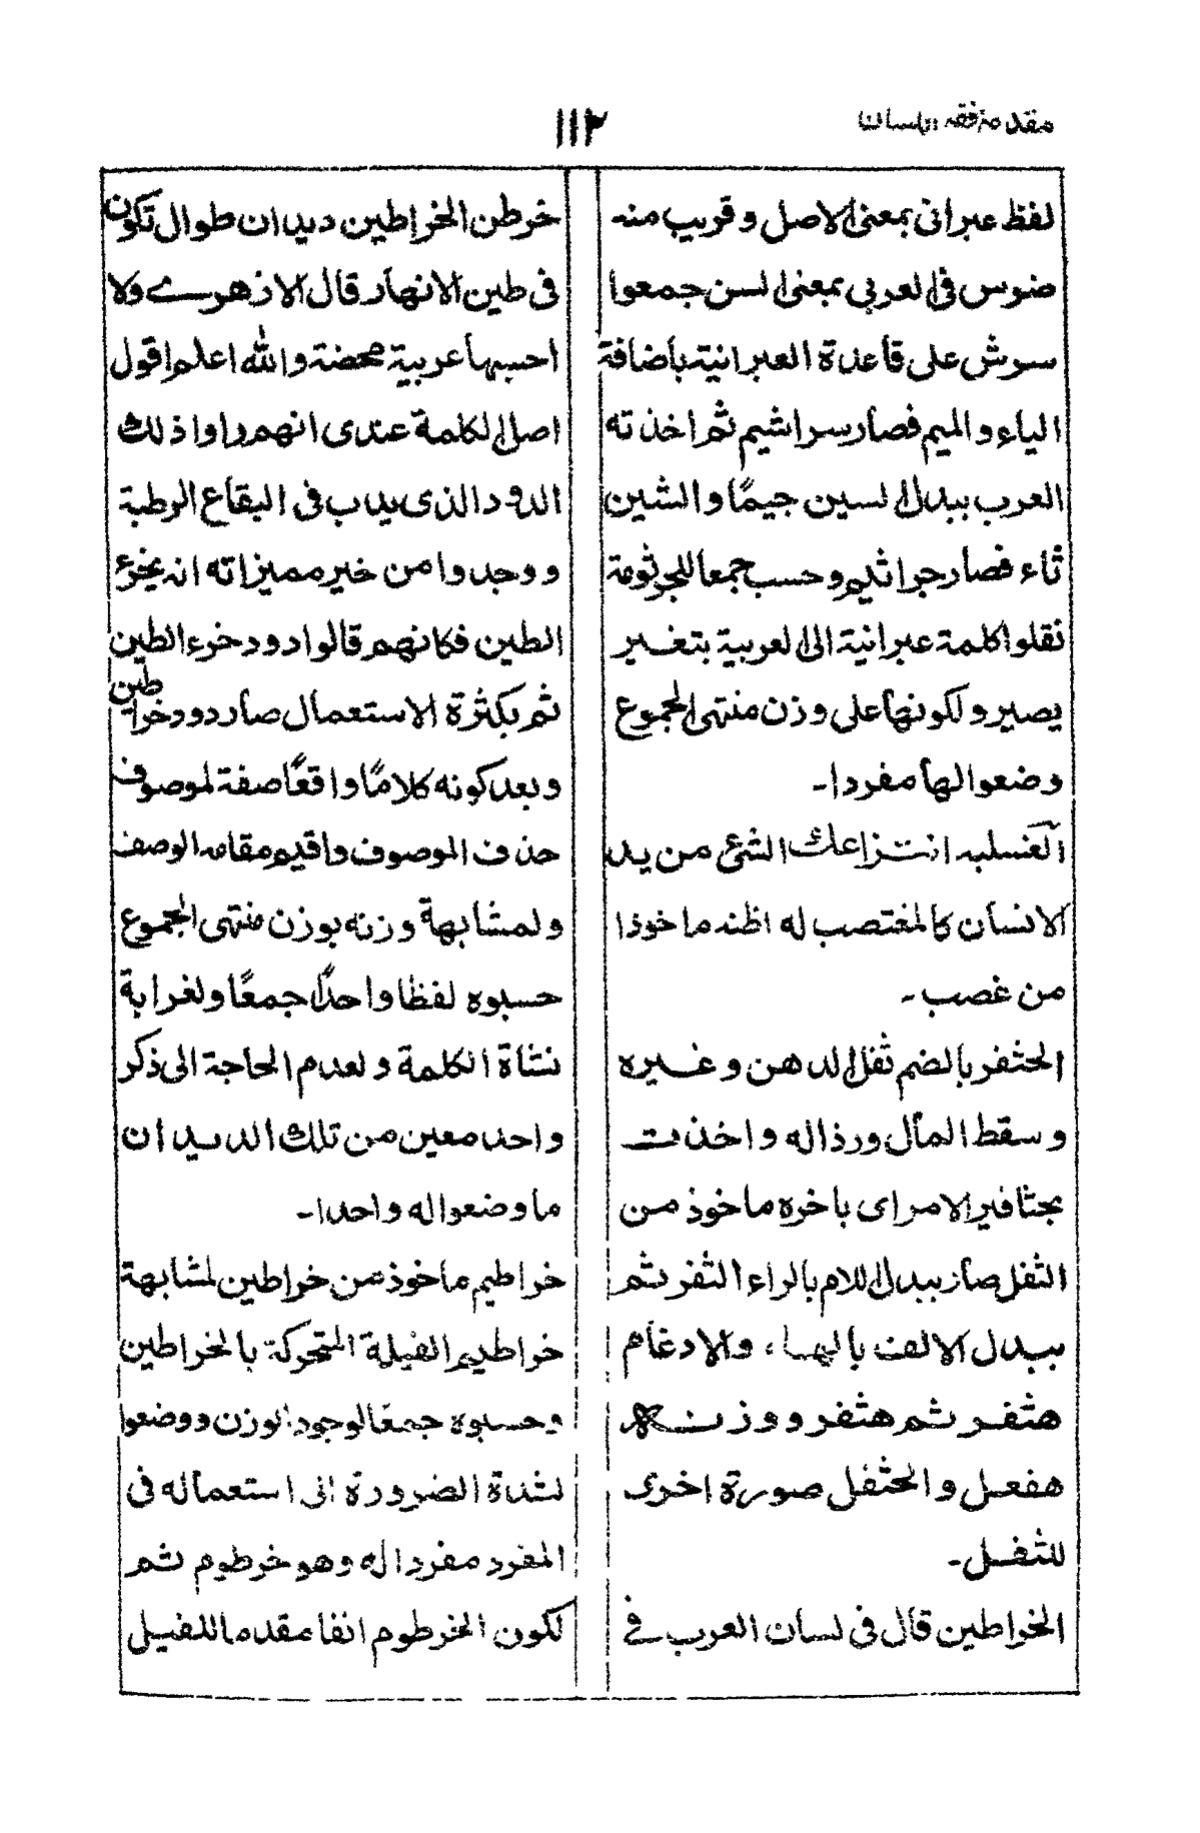 مقدمة فقه اللسان
١١٢
لفظ عبرانى بمعنى الاصل وقريب منه
ضوس فى العربى بمعنى السن جمعوا
سرش على قاعدة العبرانية باضافة
الياء والميم فصار سراشيم ثم اخذته
العرب ببدل السين جيمًا والشين
ثاء فصار جراثيم وحسب جمعا للجرثومة
نقلوا كلمة عبرانية الى العربية بتغير
يصير ولكونها على وزن منتهى الجموع
وضعوا لها مفردا۔
الغسلبه انتزاعك الشئ من يد
الانسان كالمغتصب له اظنه ماخوذا
من غصب ۔
الحثفر بالضم ثفل الدهن وغيره
وسقط المال ورذاله واخذت
بحثافير الامر اى باخره ماخوذ من
الثفل صار ببدل اللام بالراء الثفر ثم
ببدل الالف بالهاء، والادغام
هثفر ثم هثفر ووزنه
هفعل والحثفل صورة اخرى
للثفل۔
الخراطين قال فى لسان العرب فے
خرطن الخراطين ديدان طوال تكون
فى طين الانهار قال الازهرے ولا
احسبها عربية محضة والله اعلم اقول
اصل الكلمة عندى انهم راوا ذلك
الدود الذى يداب فى البقاع الرطبة
ووجدوا من خير مميزاته انه يخرء
الطين فكانهم قالوا دود خرء الطين
ثم بكثرة الاستعمال صار دود خراطين
وبعد كونه كلامًا واقعًا صفة لموصوف
حذف الموصوف واقيم مقامه الوصف
ولمشابهة وزنه بوزن منتهى الجموع
حسبوه لفظا واحدًا جمعًا ولغرابة
نشاة الكلمة ولعدم الحاجة الى ذكر
واحد معين من تلك الديدان
ما وضعوا له واحدا۔
خراطيم ماخوذ من خراطين لمشابهة
خراطيم الفيلة المتحركة بالخراطين
وحسبوه جمعا لوجود الوزن ووضعوا
لشدة الضرورة الى استعماله فى
المفرد مفردا له وهو خرطوم ثم
لكون الخرطوم انفا مقدما للفيل